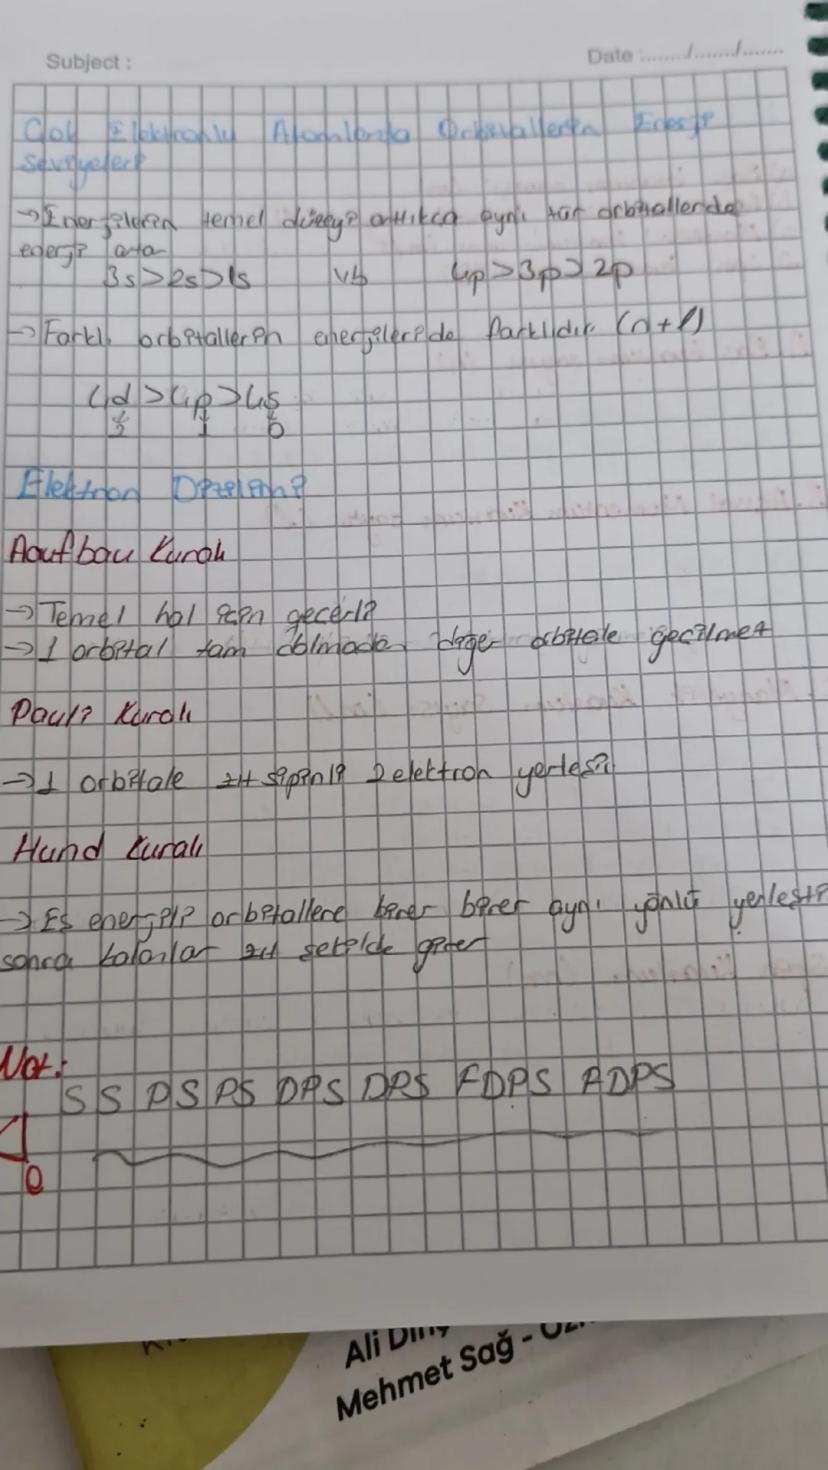 Subject :
Date :......./......./.......
Çok Elektronlu Atomlarda Orbitallerin Enerji
Seviyeleri
→ Enerjilerin temel düzeyi arttıkça aynı tür orbitallerde
enerji artar
3s>2s>1s vb 4p>3p>2p
→ Farklı orbitallerin enerjileride farklıdır (n+l)
4d >4p>4s
2 1 0
Elektron Dizilimi
Aoufbau Kuralı
→ Temel hal için geçerli
→ 1 orbital tam dolmadan diğer orbitale geçilmez
Pauli Kuralı
→ 1 orbitale zıt spinli 2 elektron yerleşir
Hund Kuralı
→ Eş enerjili orbitallere birer birer aynı yönlü yerleştir
sonra kalanlar zıt şekilde girer
Not:
S S PS PS DPS DPS FDPS FDPS
Ali
Mehmet Sağ -